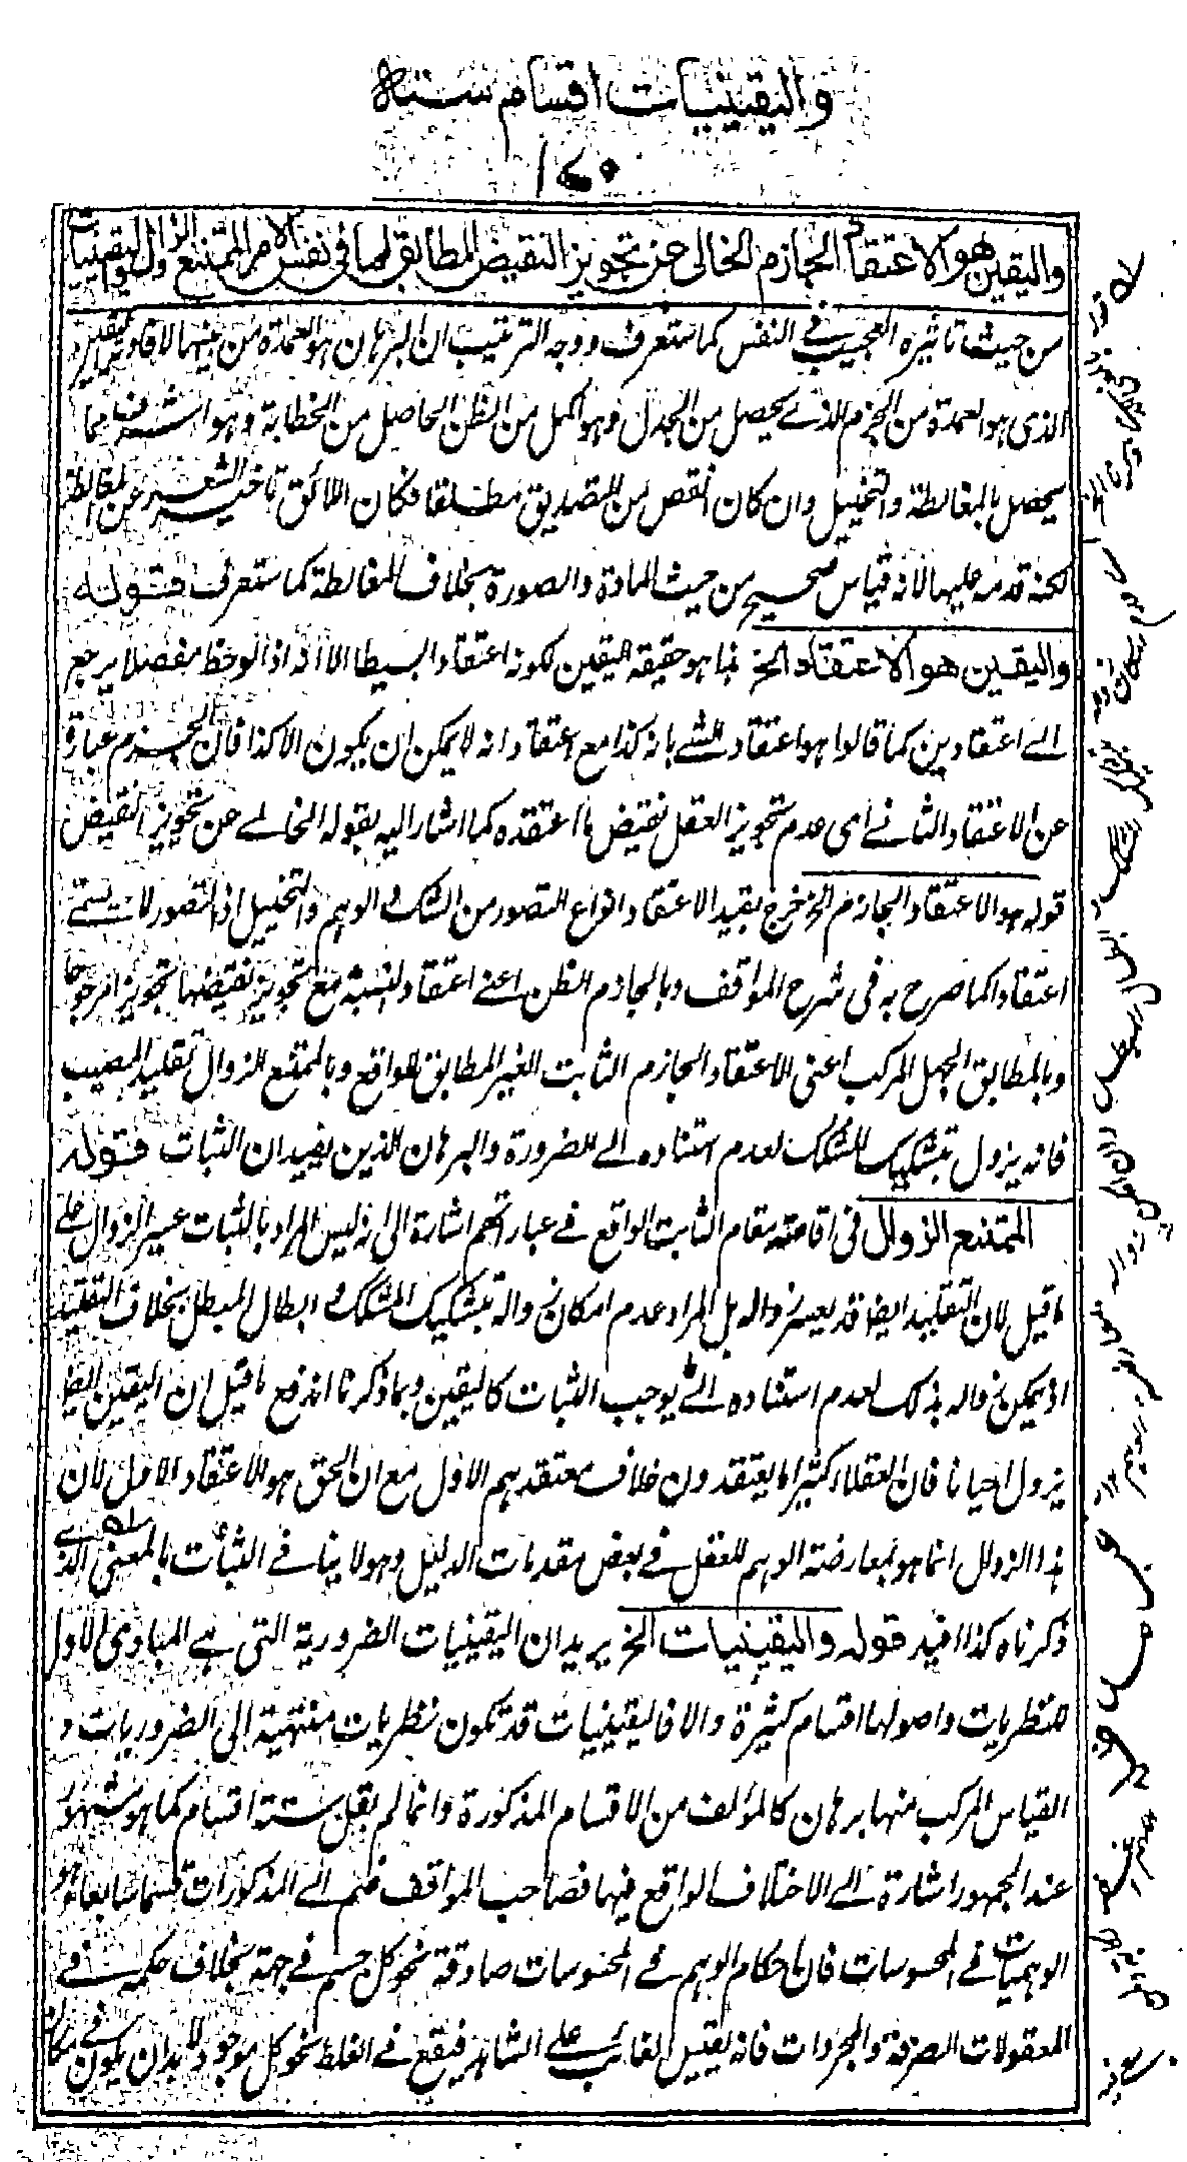 واليقينيات اقسام ستة
١٤٠
واليقين هو الاعتقاد الجازم الخالى عن تجويز النقيض المطابق لما فى نفس الامر الممتنع الزوال واليقينيات
من حيث تاثيره العجيب فى النفس كما ستعرف ووجه الترتيب ان البرهان هو العمدة من بينها لافادته اليقين
الذى هو العمدة من الجزم الذے يحصل من الجدل وهو اكمل من الظن الحاصل من الخطابة وهو اشرف مما
يحصل بالمغالطة والتخييل وان كان انقص من التصديق مطلقا فكان اللائق تاخير الشعر عن المغالطة
لكنه قدمه عليها لانه قياس صحيح من حيث المادة والصورة بخلاف المغالطة كما ستعرف قوله
واليقين هو الاعتقاد الخ هذا هو حقيقة اليقين لكونه اعتقادا بسيطا الا انه اذا لوحظ مفصلا يرجع
الے اعتقادين كما قالوا هو اعتقاد الشے بانه كذا مع اعتقاد انه لا يمكن ان يكون الا كذا فان الجزم عبارة
عن الاعتقاد الثانے اى عدم تجويز العقل نقيض ما اعتقده كما اشار اليه بقوله الخالے عن تجويز النقيض
قوله هو الاعتقاد الجازم الخ خرج بقيد الاعتقاد انواع التصور من الشك والوهم والتخييل اذ التصور لا يسمے
اعتقادا كما صرح به فى شرح المواقف وبالجازم الظن اعنے اعتقاد النسبة مع تجويز نقيضها تجويزا مرجوحا
وبالمطابق الجهل المركب اعنى الاعتقاد الجازم الثابت الغير المطابق للواقع وبالممتنع الزوال تقليد المصيب
فانه يزول بتشكيك المشكك لعدم استناده الے الضرورة والبرهان الذين يفيدان الثبات قوله
الممتنع الزوال فى اقامته مقام الثابت الواقع فے عباراتهم اشارة الى انه ليس المراد بالثبات عسر الزوال علے
ما قيل لان التقليد ايضا قد يعسر زواله بل المراد عدم امكان زواله بتشكيك المشكك وابطال المبطل بخلاف التقليد
اذ يمكن زواله بذلك لعدم استناده الے ما يوجب الثبات كاليقين وبما ذكرنا اندفع ما قيل ان اليقين ايضا
يزول احيانا فان العقلاء كثيرا ما يعتقدون خلاف معتقدهم الاول مع ان الحق هو الاعتقاد الاول لان
هذا الزوال انما هو بمعارضة الوهم للعقل فے بعض مقدمات الدليل وهو لا ينافے الثبات بالمعنى الذے
ذكرناه كذا افيد قوله واليقينيات الخ يريد ان اليقينيات الضرورية التى هے المبادى الاول
للنظريات واصولها اقسام كثيرة والا فاليقينيات قد تكون نظريات منتهية الى الضروريات و
القياس المركب منها برهان كالمؤلف من الاقسام المذكورة وانما لم يقل ستة اقسام كما هو مشهور
عند الجمهور اشارة الے الاختلاف الواقع فيها فصاحب المواقف ضم الے المذكورات قسما سابعا هو
الوهميات فے المحسوسات فان احكام الوهم فے المحسوسات صادقة نحو كل جسم فے جهة بخلاف حكمه فے
المعقولات الصرفة والمجردات فانه يقيس الغائب علے الشاهد فيقع فے الغلط نحو كل موجود لابد ان يكون فے مكان